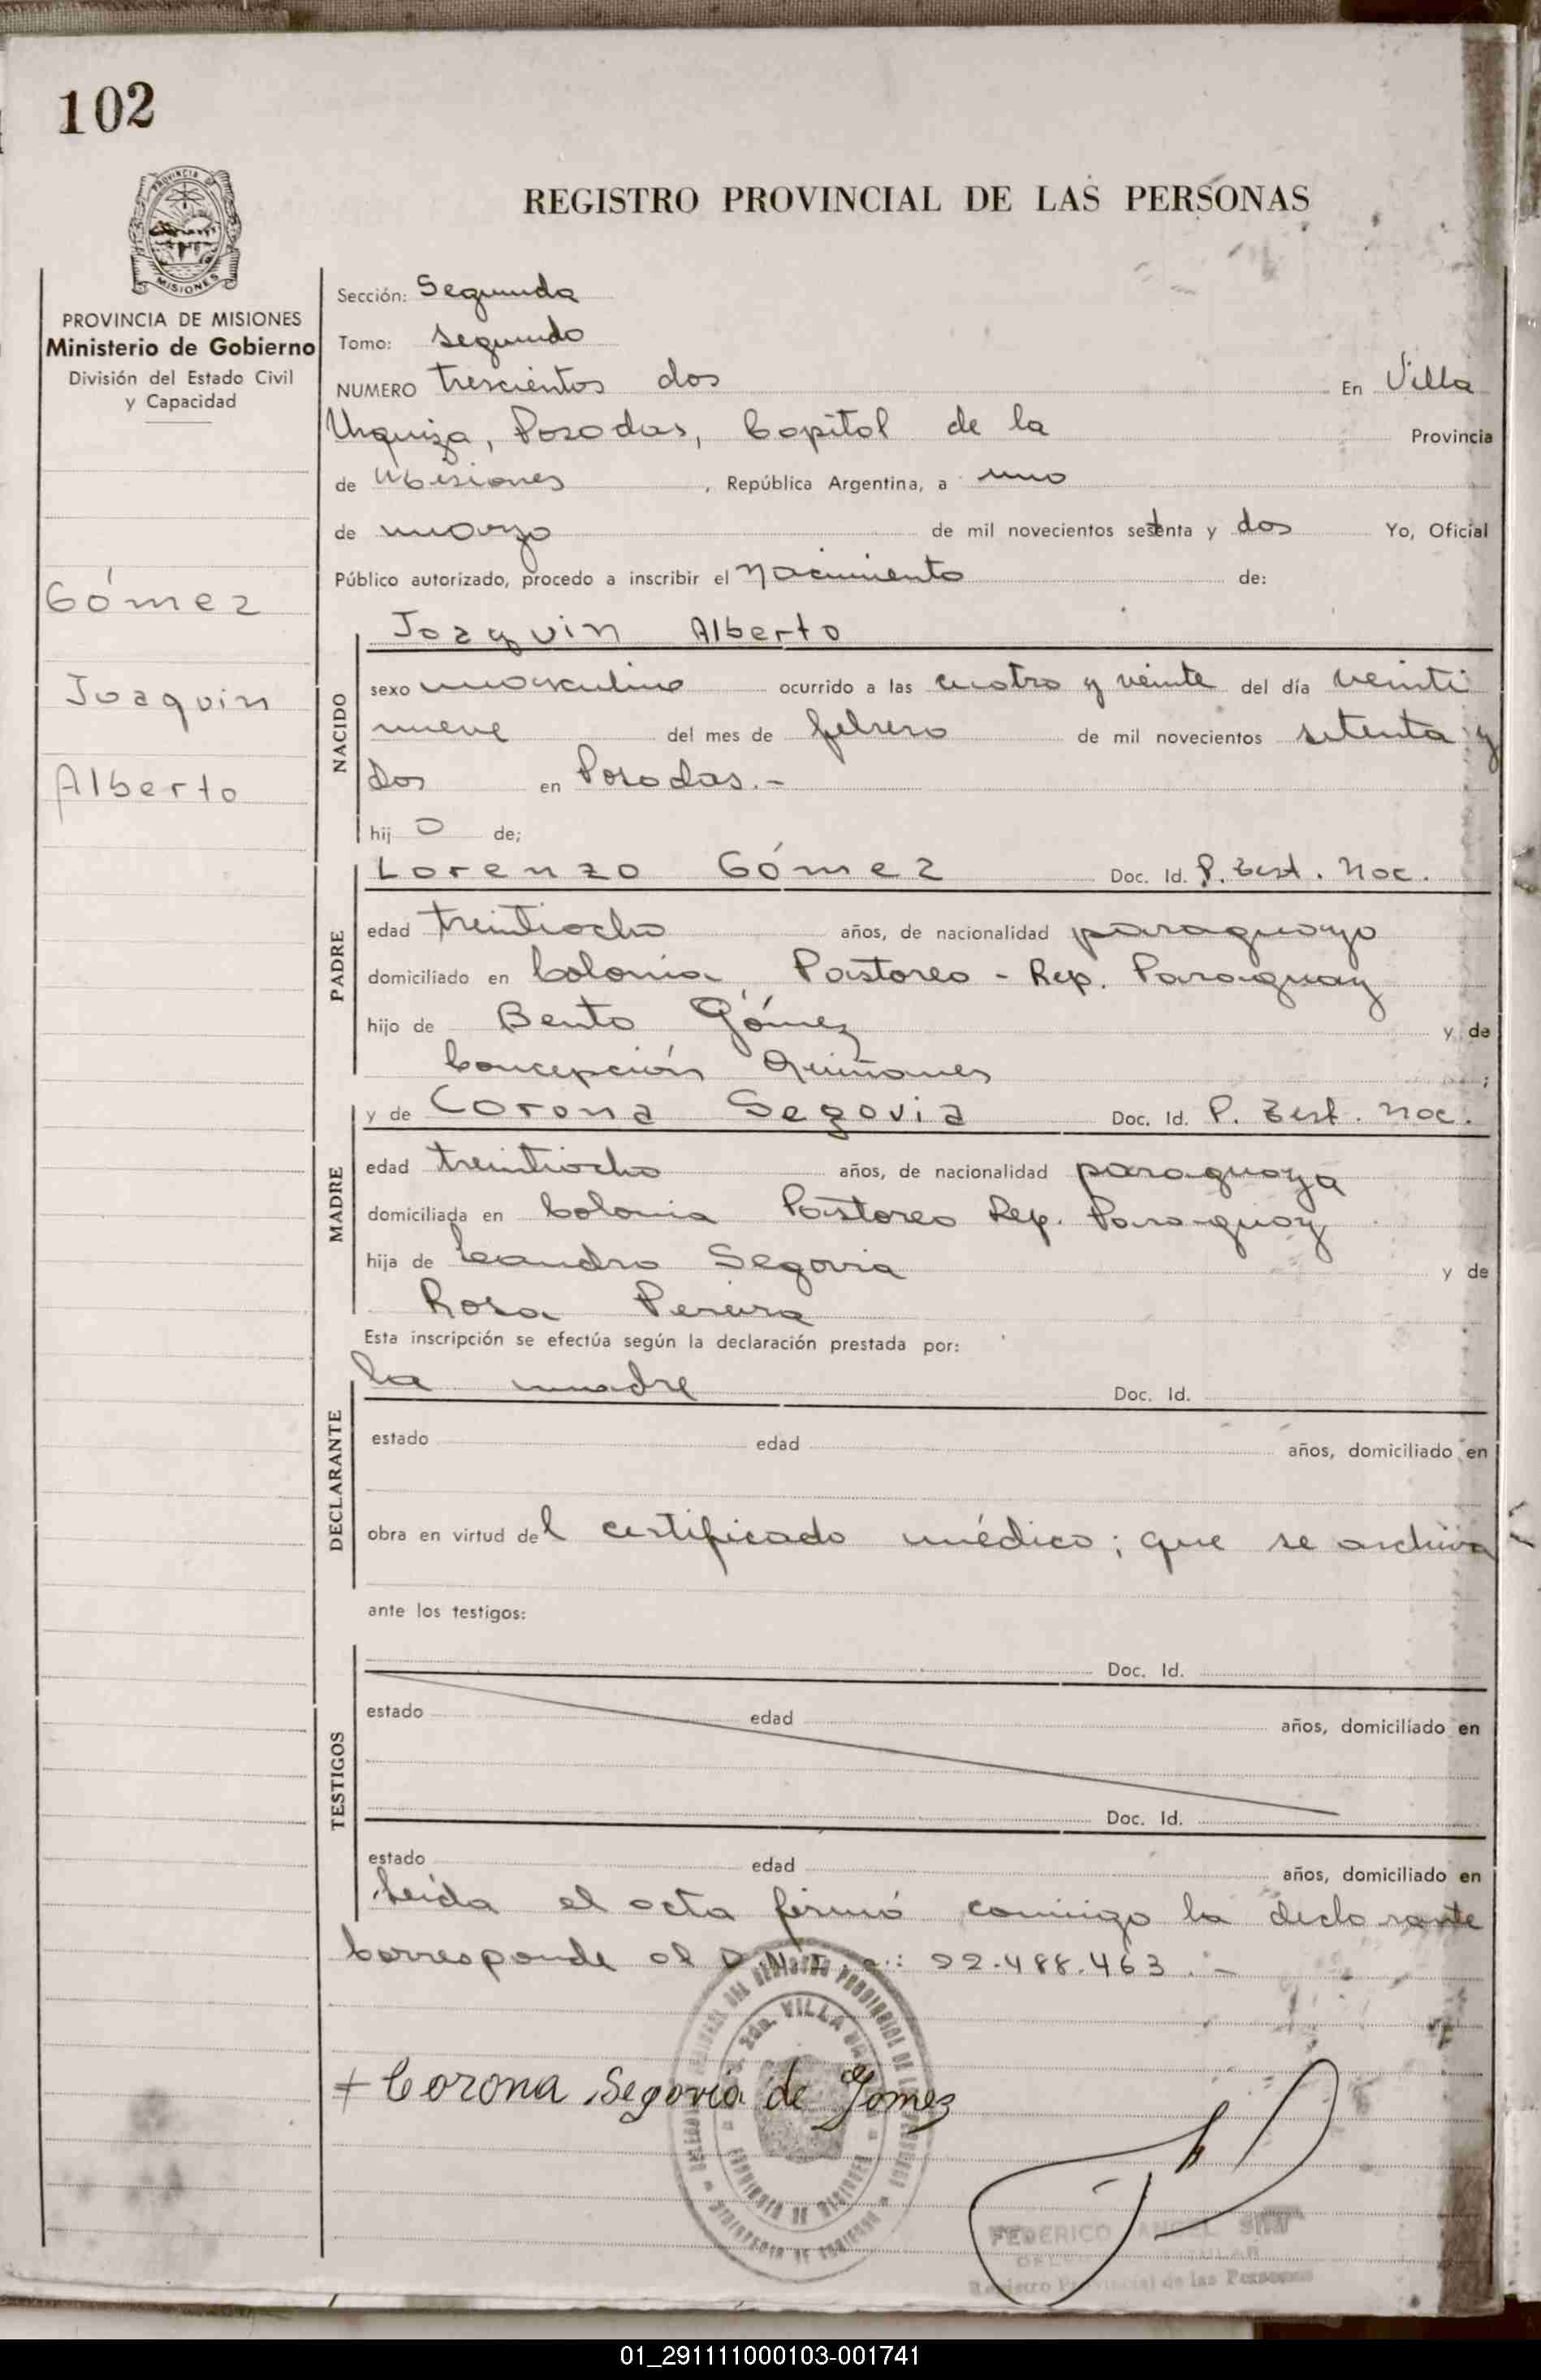 102
PROVINCIA DE
MISIONES
REGISTRO PROVINCIAL DE LAS PERSONAS
PROVINCIA DE MISIONES
Ministerio de Gobierno
División del Estado Civil
y Capacidad
Gómez
Joaquin
Alberto
Sección: Segunda
Tomo: segundo
NUMERO trescientos dos En Villa
Urquiza, Posadas, Capital de la Provincia
de Misiones, República Argentina, a uno
de marzo de mil novecientos setenta y dos Yo, Oficial
Público autorizado, procedo a inscribir el nacimiento de:
Joaquin Alberto
NACIDO
sexo masculino ocurrido a las cuatro y veinte del día veinti
nueve del mes de febrero de mil novecientos setenta y
dos en Posadas.-
hij o de;
PADRE
Lorenzo Gómez Doc. Id. P. Cert. Nac.
edad treintiocho años, de nacionalidad paraguayo
domiciliado en Colonia Pastoreo - Rep. Paraguay
hijo de Bento Gómez y de
Concepción Quiñones ;
MADRE
y de Corona Segovia Doc. Id. P. Cert. Nac.
edad treintiocho años, de nacionalidad paraguaya
domiciliada en Colonia Pastoreo Rep. Paraguay
hija de Leandro Segovia y de
Rosa Pereira
Esta inscripción se efectúa según la declaración prestada por:
DECLARANTE
la madre Doc. Id.
estado edad años, domiciliado en
obra en virtud del certificado médico; que se archiva
ante los testigos:
TESTIGOS
Doc. Id.
estado edad años, domiciliado en
Doc. Id.
estado edad años, domiciliado en
Leída el acta firmó conmigo la declarante
Corresponde al D.N.I. : 22.488.463.-
+ Corona Segovia de Gomez
FEDERICO ANGEL
Registro Provincial de las Personas
01_291111000103-001741